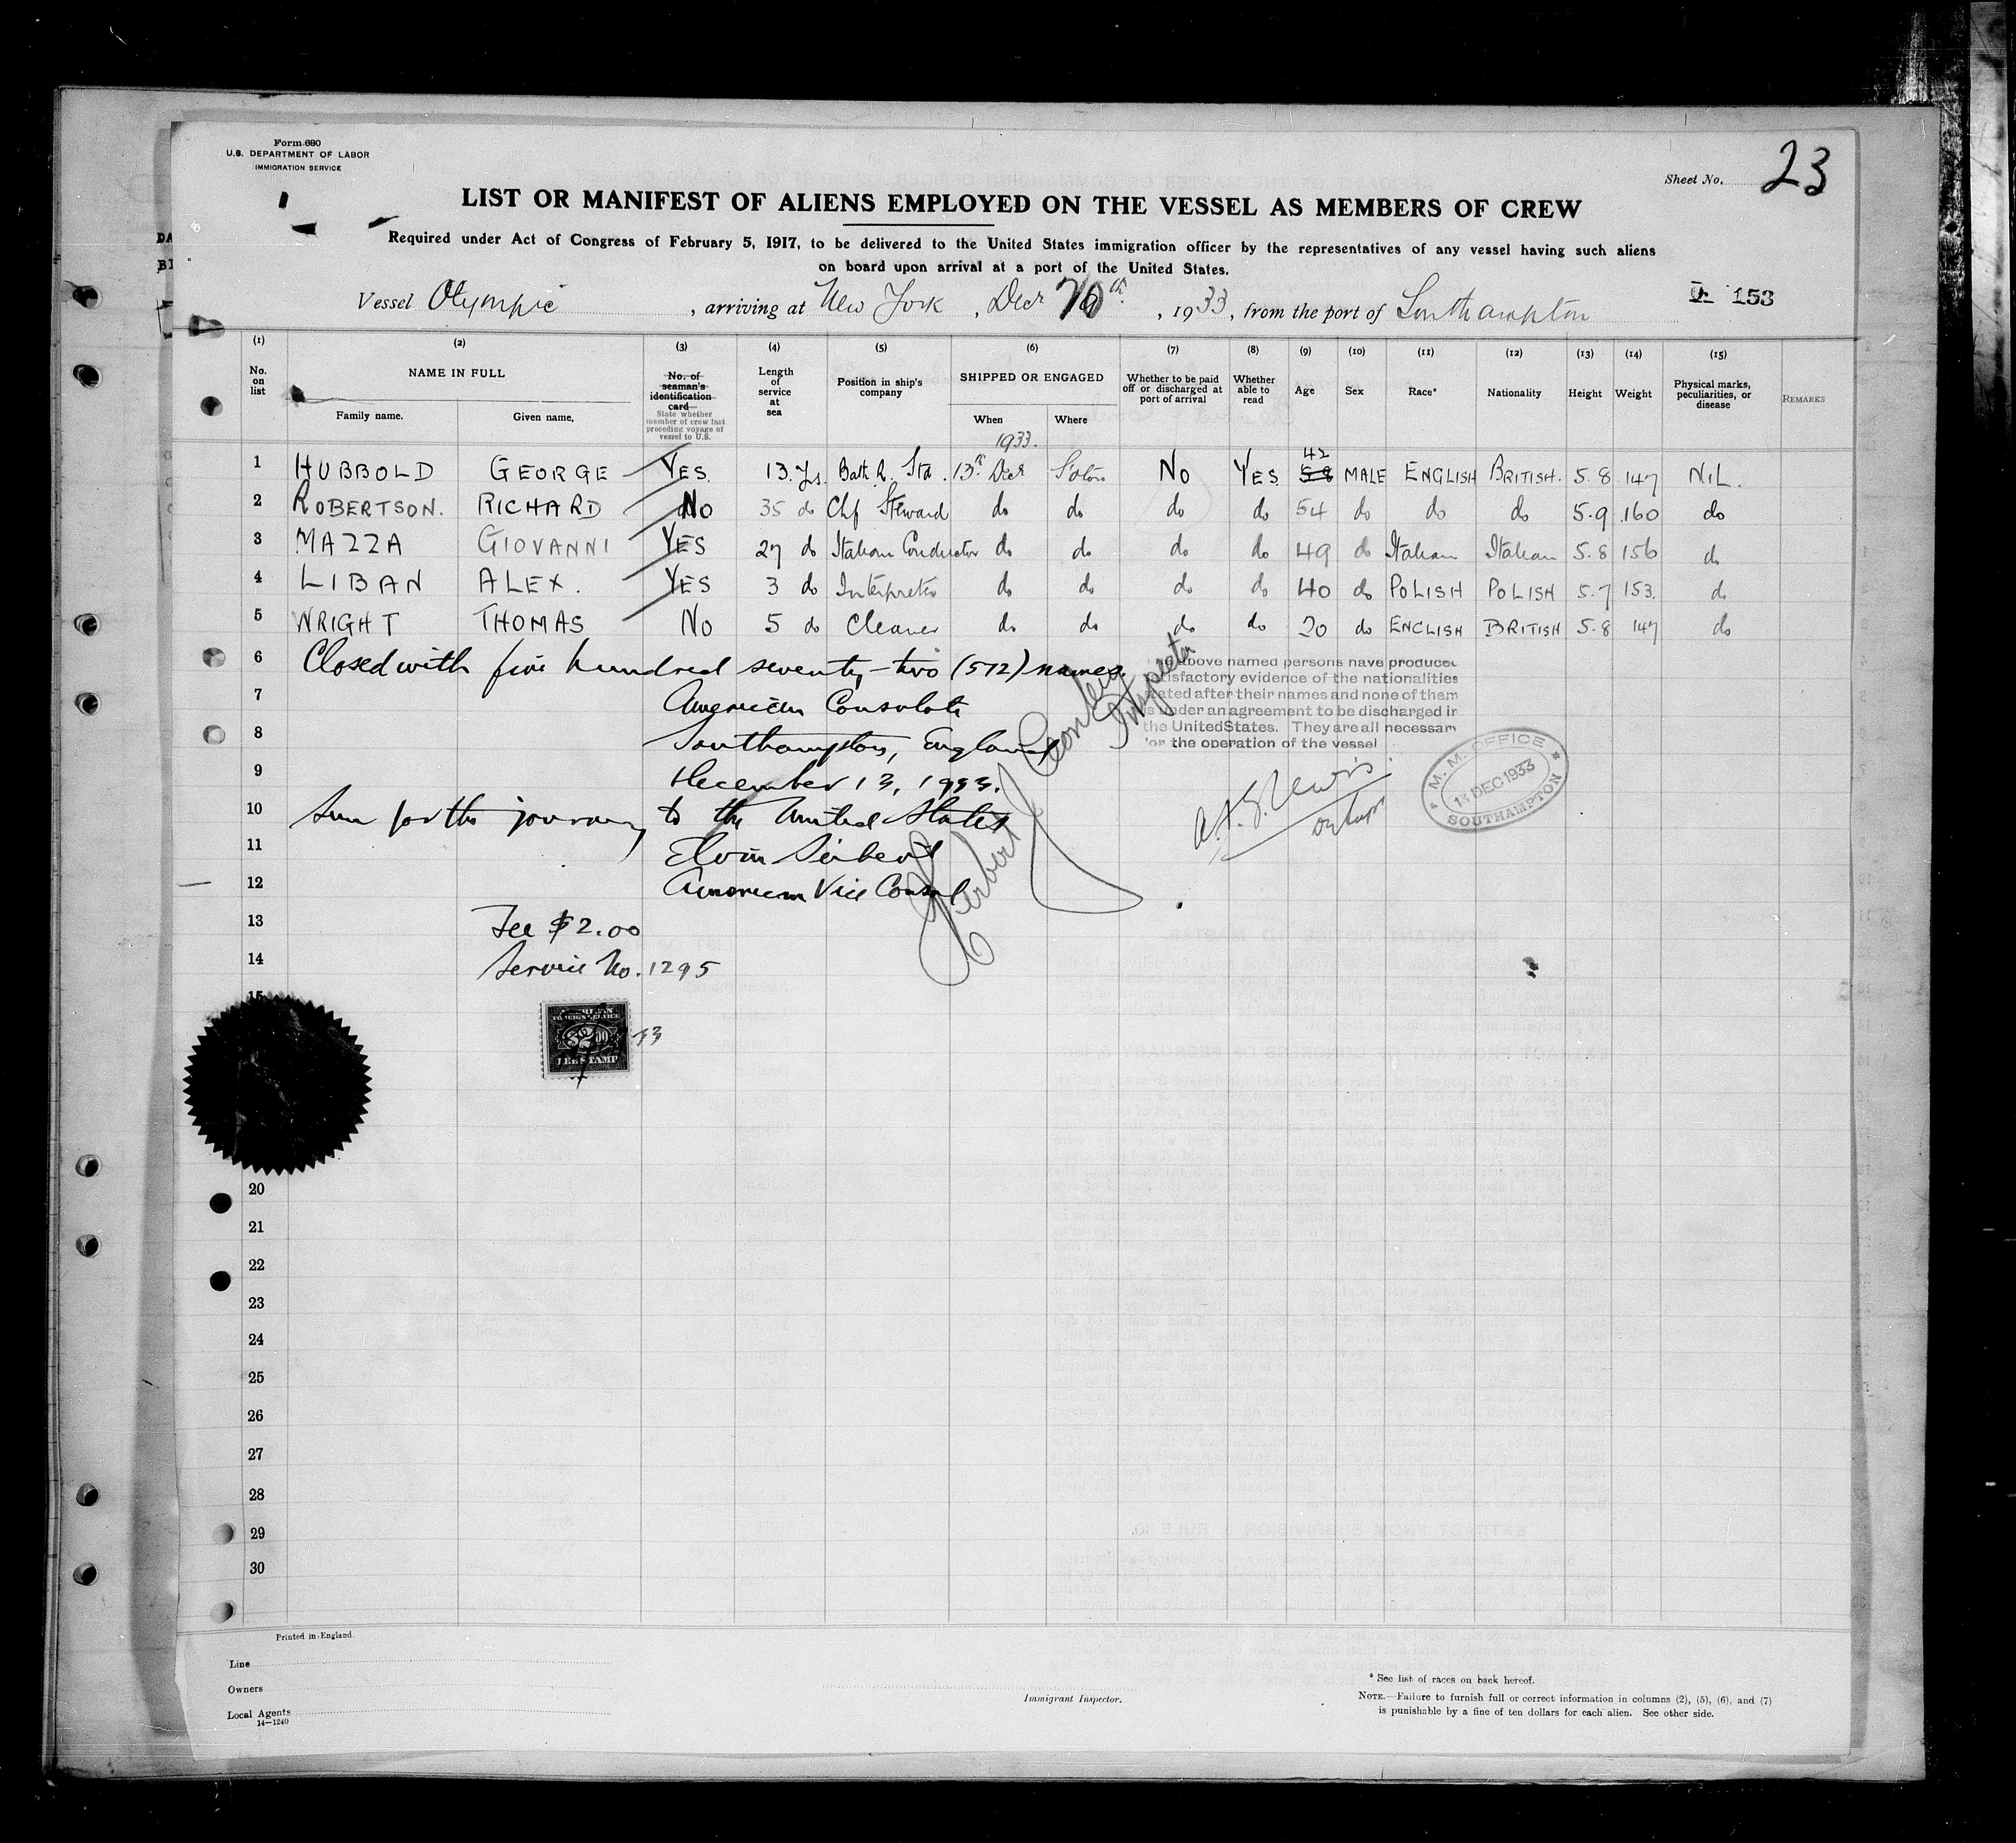 Form 680
U.S. DEPARTMENT OF LABOR
IMMIGRATION SERVICE
Sheet No. 23
LIST OR MANIFEST OF ALIENS EMPLOYED ON THE VESSEL AS MEMBERS OF CREW
Required under Act of Congress of February 5, 1917, to be delivered to the United States immigration officer by the representatives of any vessel having such aliens
on board upon arrival at a port of the United States.
Vessel Olympic, arriving at New York, Decr th, 1933, from the port of Southampton
153
(1) (2) (3) (4) (5) (6) (7) (8) (9) (10) (11) (12) (13) (14) (15)
No. on list
NAME IN FULL
Family name. Given name.
No. of seaman's identification card
State whether member of crew last preceding voyage of vessel to U.S.
Length of service at sea
Position in ship's company
SHIPPED OR ENGAGED
When Where
1933.
Whether to be paid off or discharged at port of arrival
Whether able to read
Age
Sex
Race*
Nationality
Height
Weight
Physical marks, peculiarities, or disease
REMARKS
42
1 HUBBOLD GEORGE YES. 13. Ys. Bath R. Std. 13th Decr S'oton NO YES 58 MALE ENGLISH BRITISH. 5.8 147 NIL.
2 ROBERTSON. RICHARD NO 35 do Chf Steward do do do do 54 do do do 5.9 160 do
3 MAZZA GIOVANNI YES 27 do Italian Conductor do do do do 49 do Italian Italian 5.8 156 do
4 LIBAN ALEX. YES 3 do Interpreter do do do do 40 do POLISH POLISH 5.7 153. do
5 WRIGHT THOMAS NO 5 do Cleaner do do do do 20 do ENGLISH BRITISH 5.8 147 do
6 Closed with five hundred seventy-two (572) names.
above named persons have produced
satisfactory evidence of the nationalities
stated after their names and none of them
is under an agreement to be discharged in
the United States. They are all necessary
for the operation of the vessel
7 American Consulate
8 Southampton, England
9 December 13, 1933.
10 Seen for the journey to the United States
11 Elvin Seibert
12 American Vice Consul
M. M. OFFICE
13 DEC 1933
SOUTHAMPTON
13 Fee $2.00
14 Service No. 1295
15
AMERICAN
FOREIGN SERVICE
$2.00
FEE STAMP
33
20
21
22
23
24
25
26
27
28
29
30
Printed in England
Line
Owners
Local Agents
14—1240
Immigrant Inspector.
* See list of races on back hereof.
NOTE.—Failure to furnish full or correct information in columns (2), (5), (6), and (7)
is punishable by a fine of ten dollars for each alien. See other side.